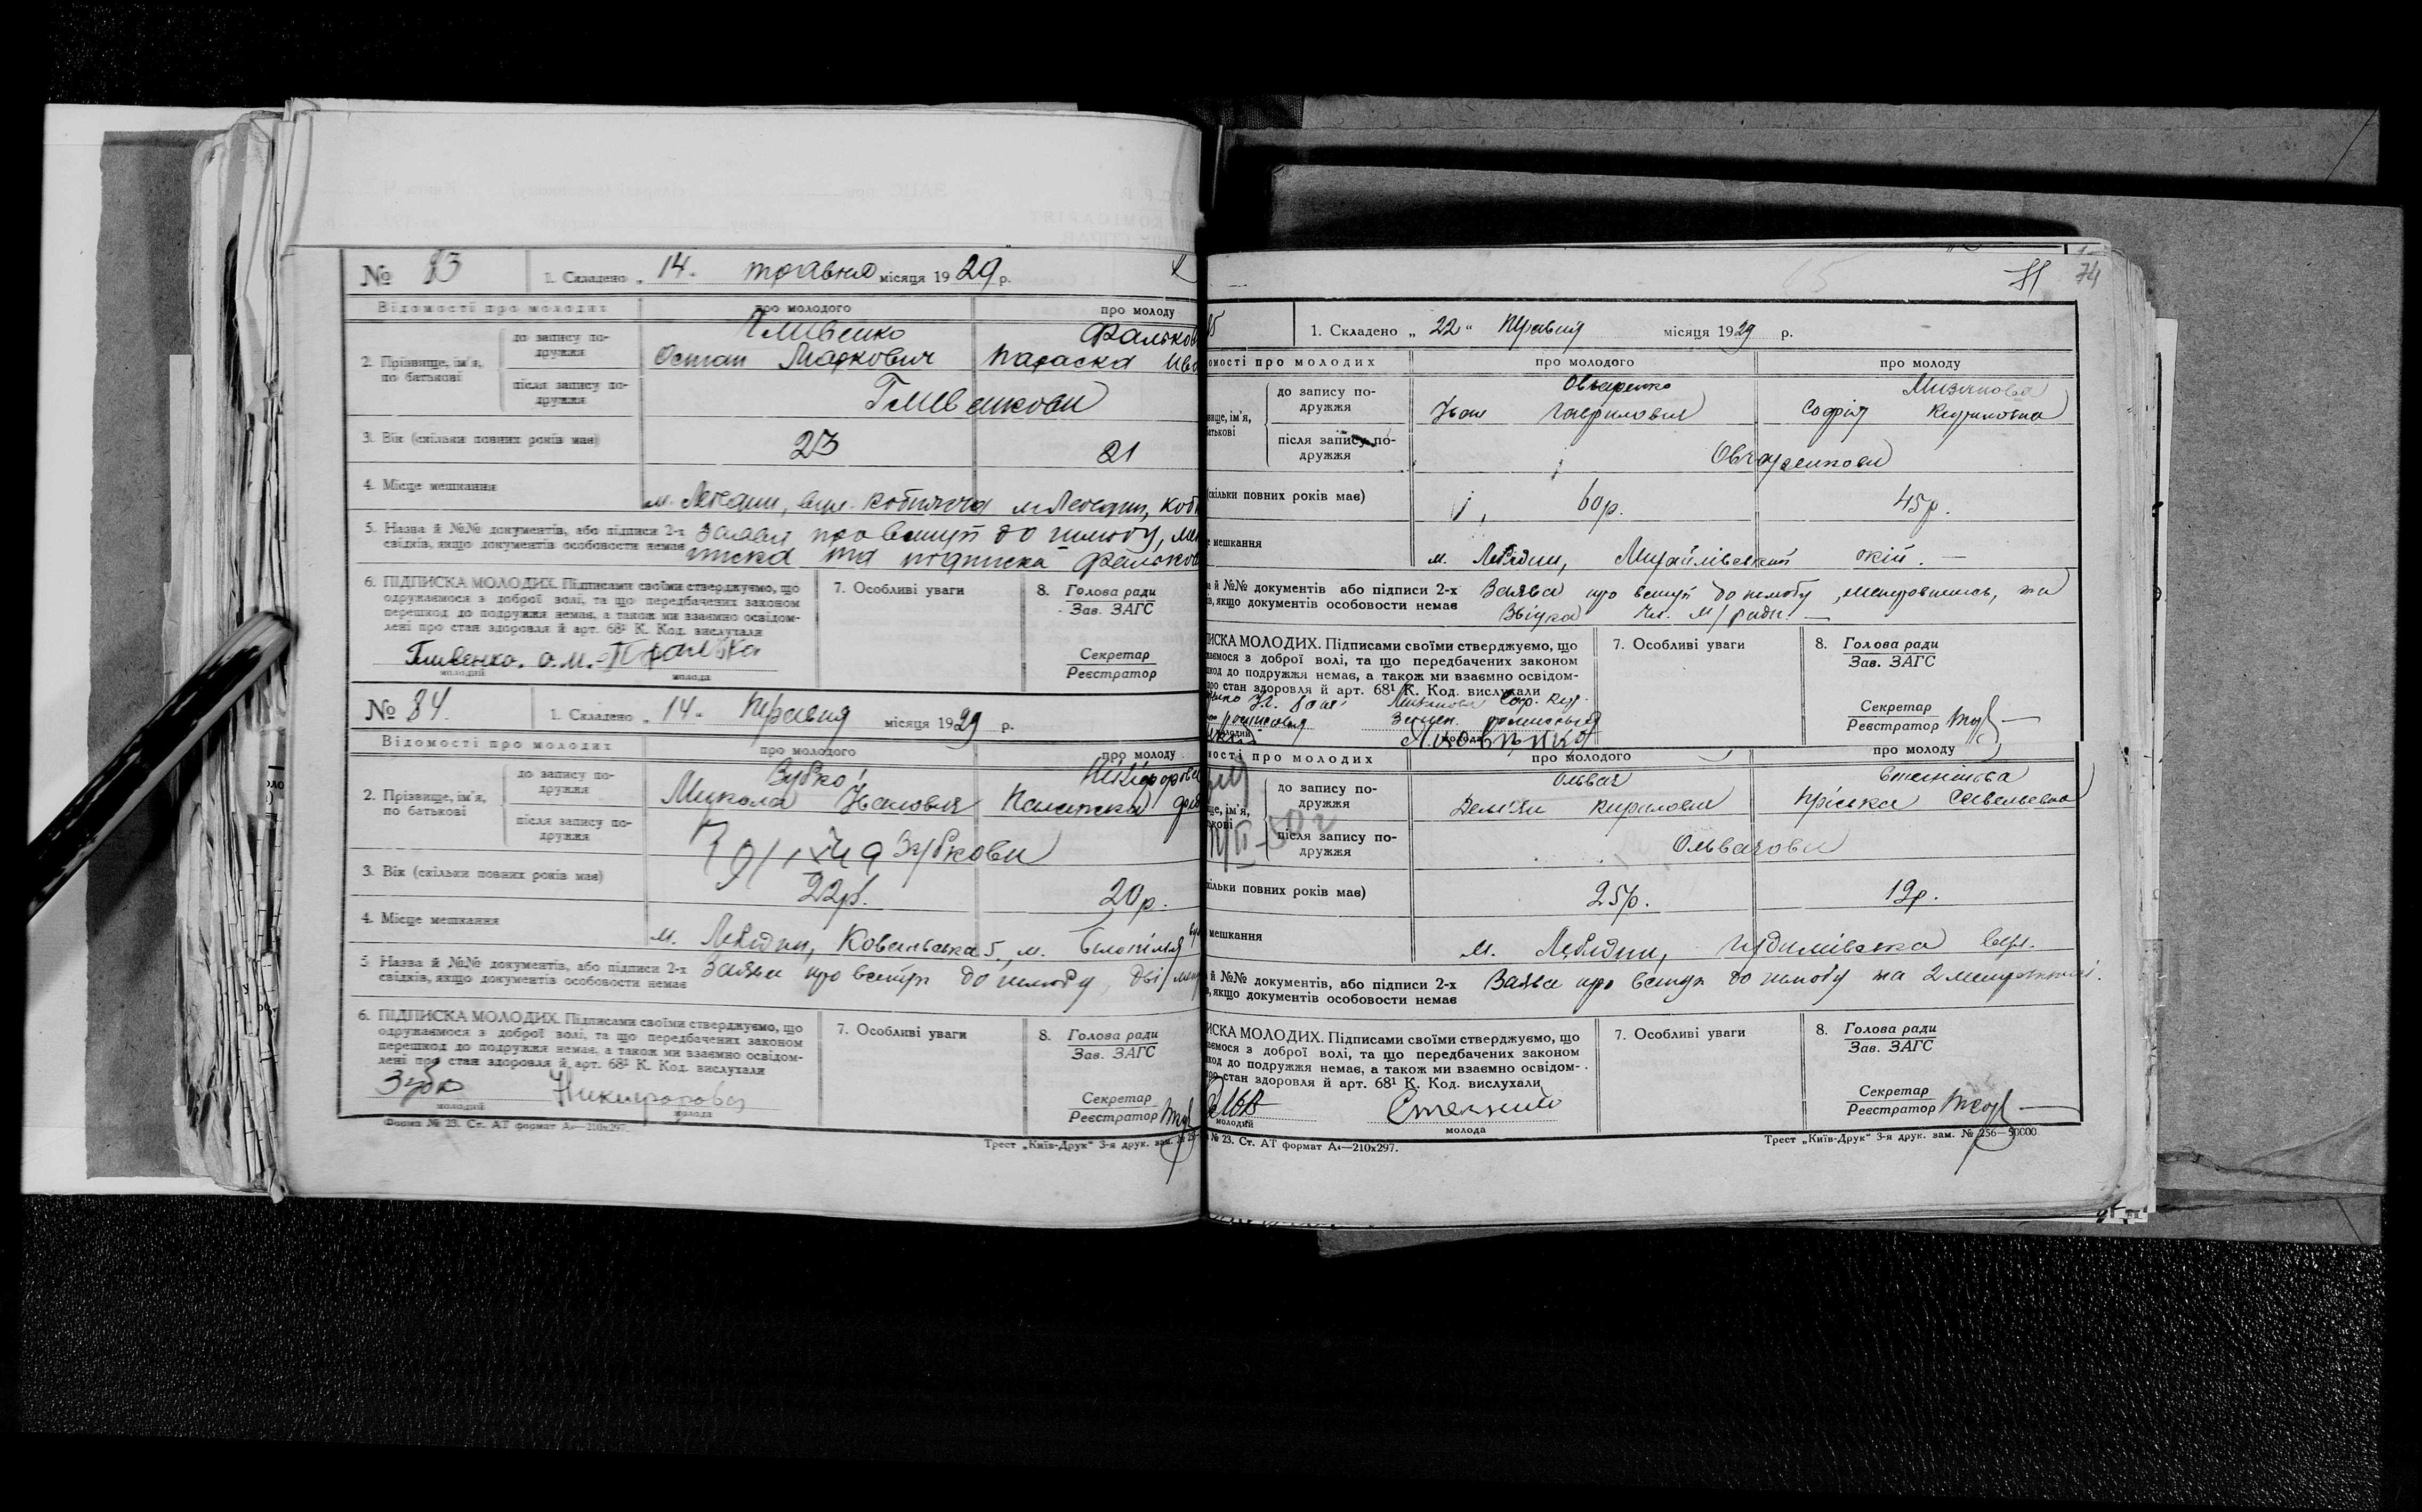 № 83
1. Складено „ 14 " травня місяця 1929 р.
Відомості про молодих
про молодого
про молоду
2. Прізвище, ім'я, по батькові
до запису по-
дружжя
Гливенко
Фальков
Остап Маркович
Параска Ів
після запису по-
дружжя
Гливенкови
3. Вік (скільки повних років має)
23
21
4. Місце мешкання
м. Лебедин, вул. Кобижча
м. Лебедин, Коб
5. Назва й №№ документів, або підписи 2-х
свідків, якщо документів особовости немає
Заява про вступ до шлюбу,
та підписка Фальков
6. ПІДПИСКА МОЛОДИХ. Підписами своїми стверджуємо, що
одружаємося з доброї волі, та що передбачених законом
перешкод до подружжя немає, а також ми взаємно освідом-
лені про стан здоровля й арт. 68¹ К. Код. вислухали
Гливенко. О. М.
молодий
молода
7. Особливі уваги
8. Голова ради
Зав. ЗАГС
Секретар
Реєстратор
№ 84.
1. Складено „ 14 " Травня місяця 1929 р.
Відомості про молодих
про молодого
про молоду
2. Прізвище, ім'я,
по батькові
до запису по-
дружжя
Зубко
Никифорова
Микола Іванович
після запису по-
дружжя
Зубкови
3. Вік (скільки повних років має)
22р.
20р.
4. Місце мешкання
м. Лебідин,
5., м. Білопілля
5 Назва й №№ документів, або підписи 2-х
свідків, якщо документів особовости немає
Заява про вступ до шлюбу, дві
6. ПІДПИСКА МОЛОДИХ. Підписами своїми стверджуємо, що
одружаємося з доброї волі, та що передбачених законом
перешкод до подружжя немає, а також ми взаємно освідом-
лені про стан здоровля й арт. 68¹ К. Код. вислухали
Зубко
Никифорова
молодий
молода
7. Особливі уваги
8. Голова ради
Зав. ЗАГС
Секретар
Реєстратор
Форма № 23. Ст. АТ формат А₄—210х297.
Трест „Київ-Друк" 3-я друк. зам. №
74
85
1. Складено „ 22 " Травня місяця 1929 р.
омості про молодих
про молодого
про молоду
вище, ім'я,
атькові
до запису по-
дружжя
Овчаренко
Мизикова
Іван Гаврилович
Софія Кириловна
після запису по-
дружжя
Овчаренкови
(скільки повних років має)
60р.
45р.
е мешкання
м. Лебідин, Михайлівської окій.
а й №№ документів або підписи 2-х
в, якщо документів особовости немає
Заява про вступ до шлюбу, метрвипись, та
Звідка м/ради.
ПИСКА МОЛОДИХ. Підписами своїми стверджуємо, що
жаємося з доброї волі, та що передбачених законом
шкод до подружжя немає, а також ми взаємно освідом-
про стан здоровля й арт. 68¹ К. Код. вислухали
молодий
молода
7. Особливі уваги
8. Голова ради
Зав. ЗАГС
Секретар
Реєстратор
мості про молодих
про молодого
про молоду
ще, ім'я,
ькові
до запису по-
дружжя
Ольвач
Дем'ян Кирилович
Пріська Савельевна
після запису по-
дружжя
Ольвачови
ільки повних років має)
25р.
19р.
мешкання
м. Лебідин, вул.
й №№ документів, або підписи 2-х
в, якщо документів особовости немає
Заява про вступ до шлюбу та 2
ИСКА МОЛОДИХ. Підписами своїми стверджуємо, що
аємося з доброї волі, та що передбачених законом
код до подружжя немає, а також ми взаємно освідом-
про стан здоровля й арт. 68¹ К. Код. вислухали
молодий
молода
7. Особливі уваги
8. Голова ради
Зав. ЗАГС
Секретар
Реєстратор
№ 23. Ст. АТ формат А₄—210х297.
Трест „Київ-Друк" 3-я друк. зам. № 256—50000